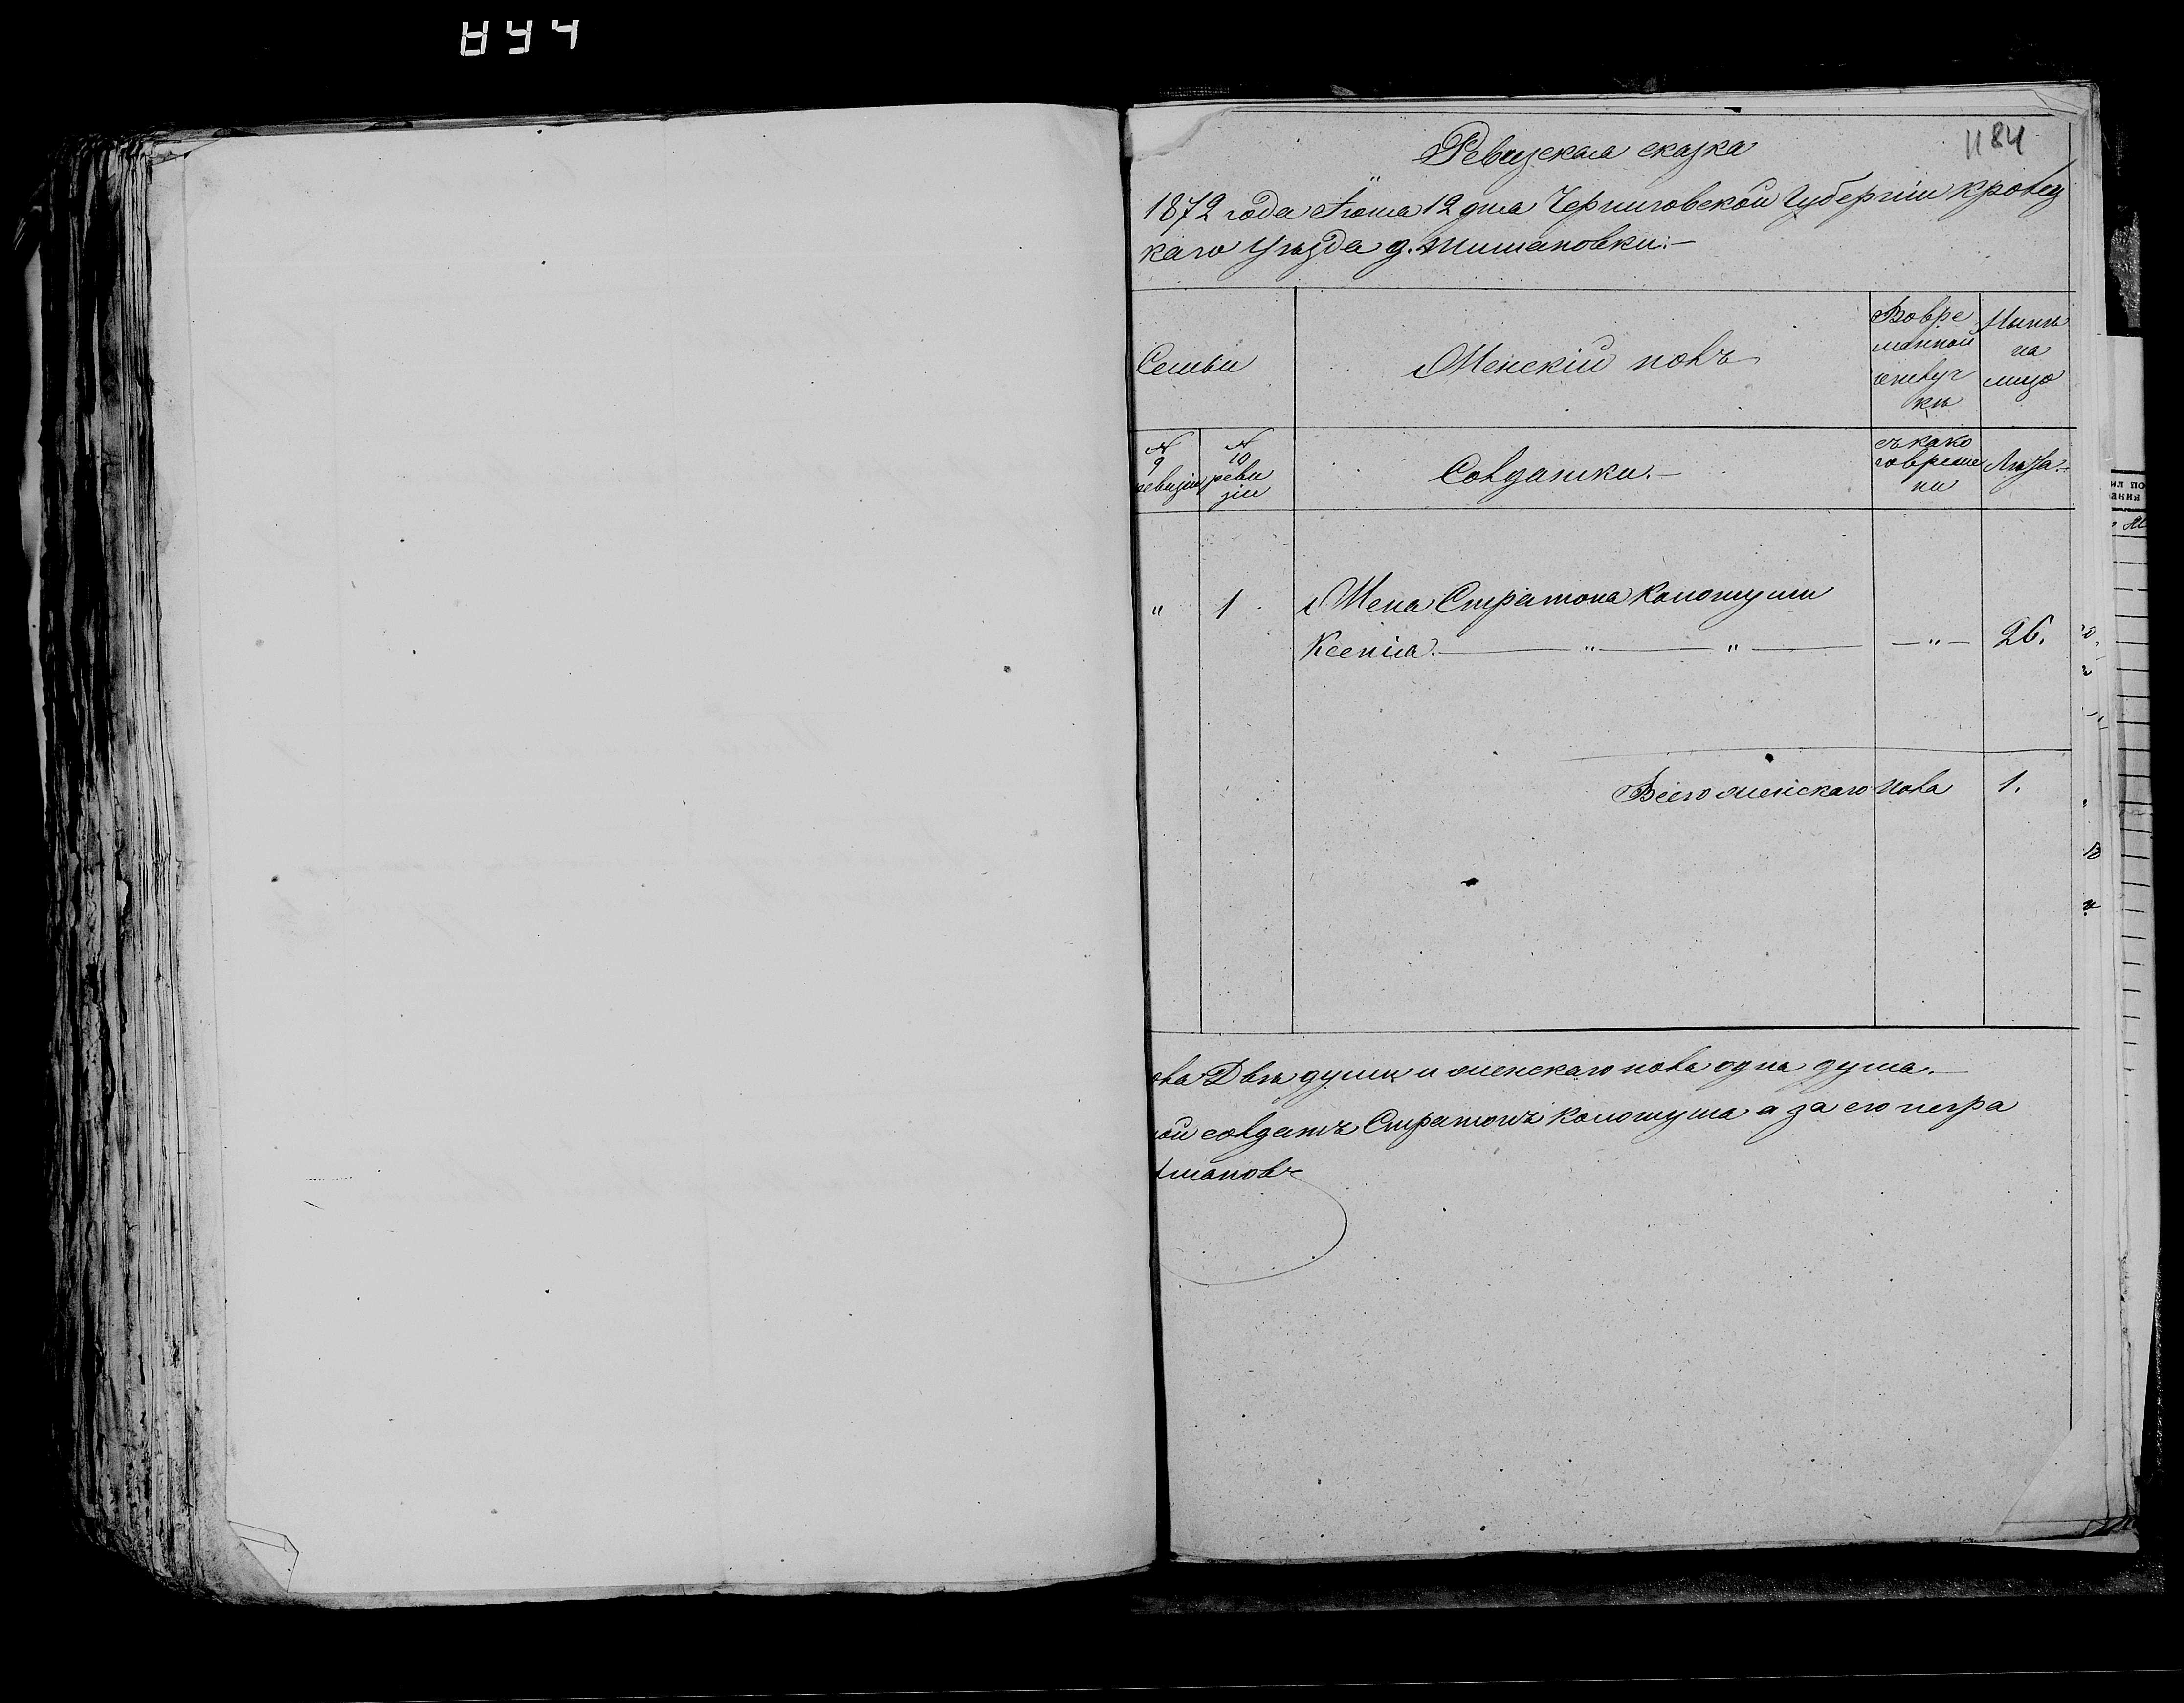 1184
Ревизская сказка
1872 года Июня 12 дня Черниговской Губерніи Кролев
каго Уѣзда д.
Семьи
Женскій полъ
Вовре
менной
отлуч
кѣ
Нынѣ
на
лицо
№
9
ревизіи
№
10
реви
зіи
Солдатки.—
съ како
говреме
ни
Лѣта.—
„ 1 Жена Стратона Колотуши
Ксенія. — „ — „ — — „ — 26.
Всего женскаго пола 1.
ола Двѣ души и женскаго пола одна душа.—
ой солдатъ Стратонъ Колотуша а за его негра